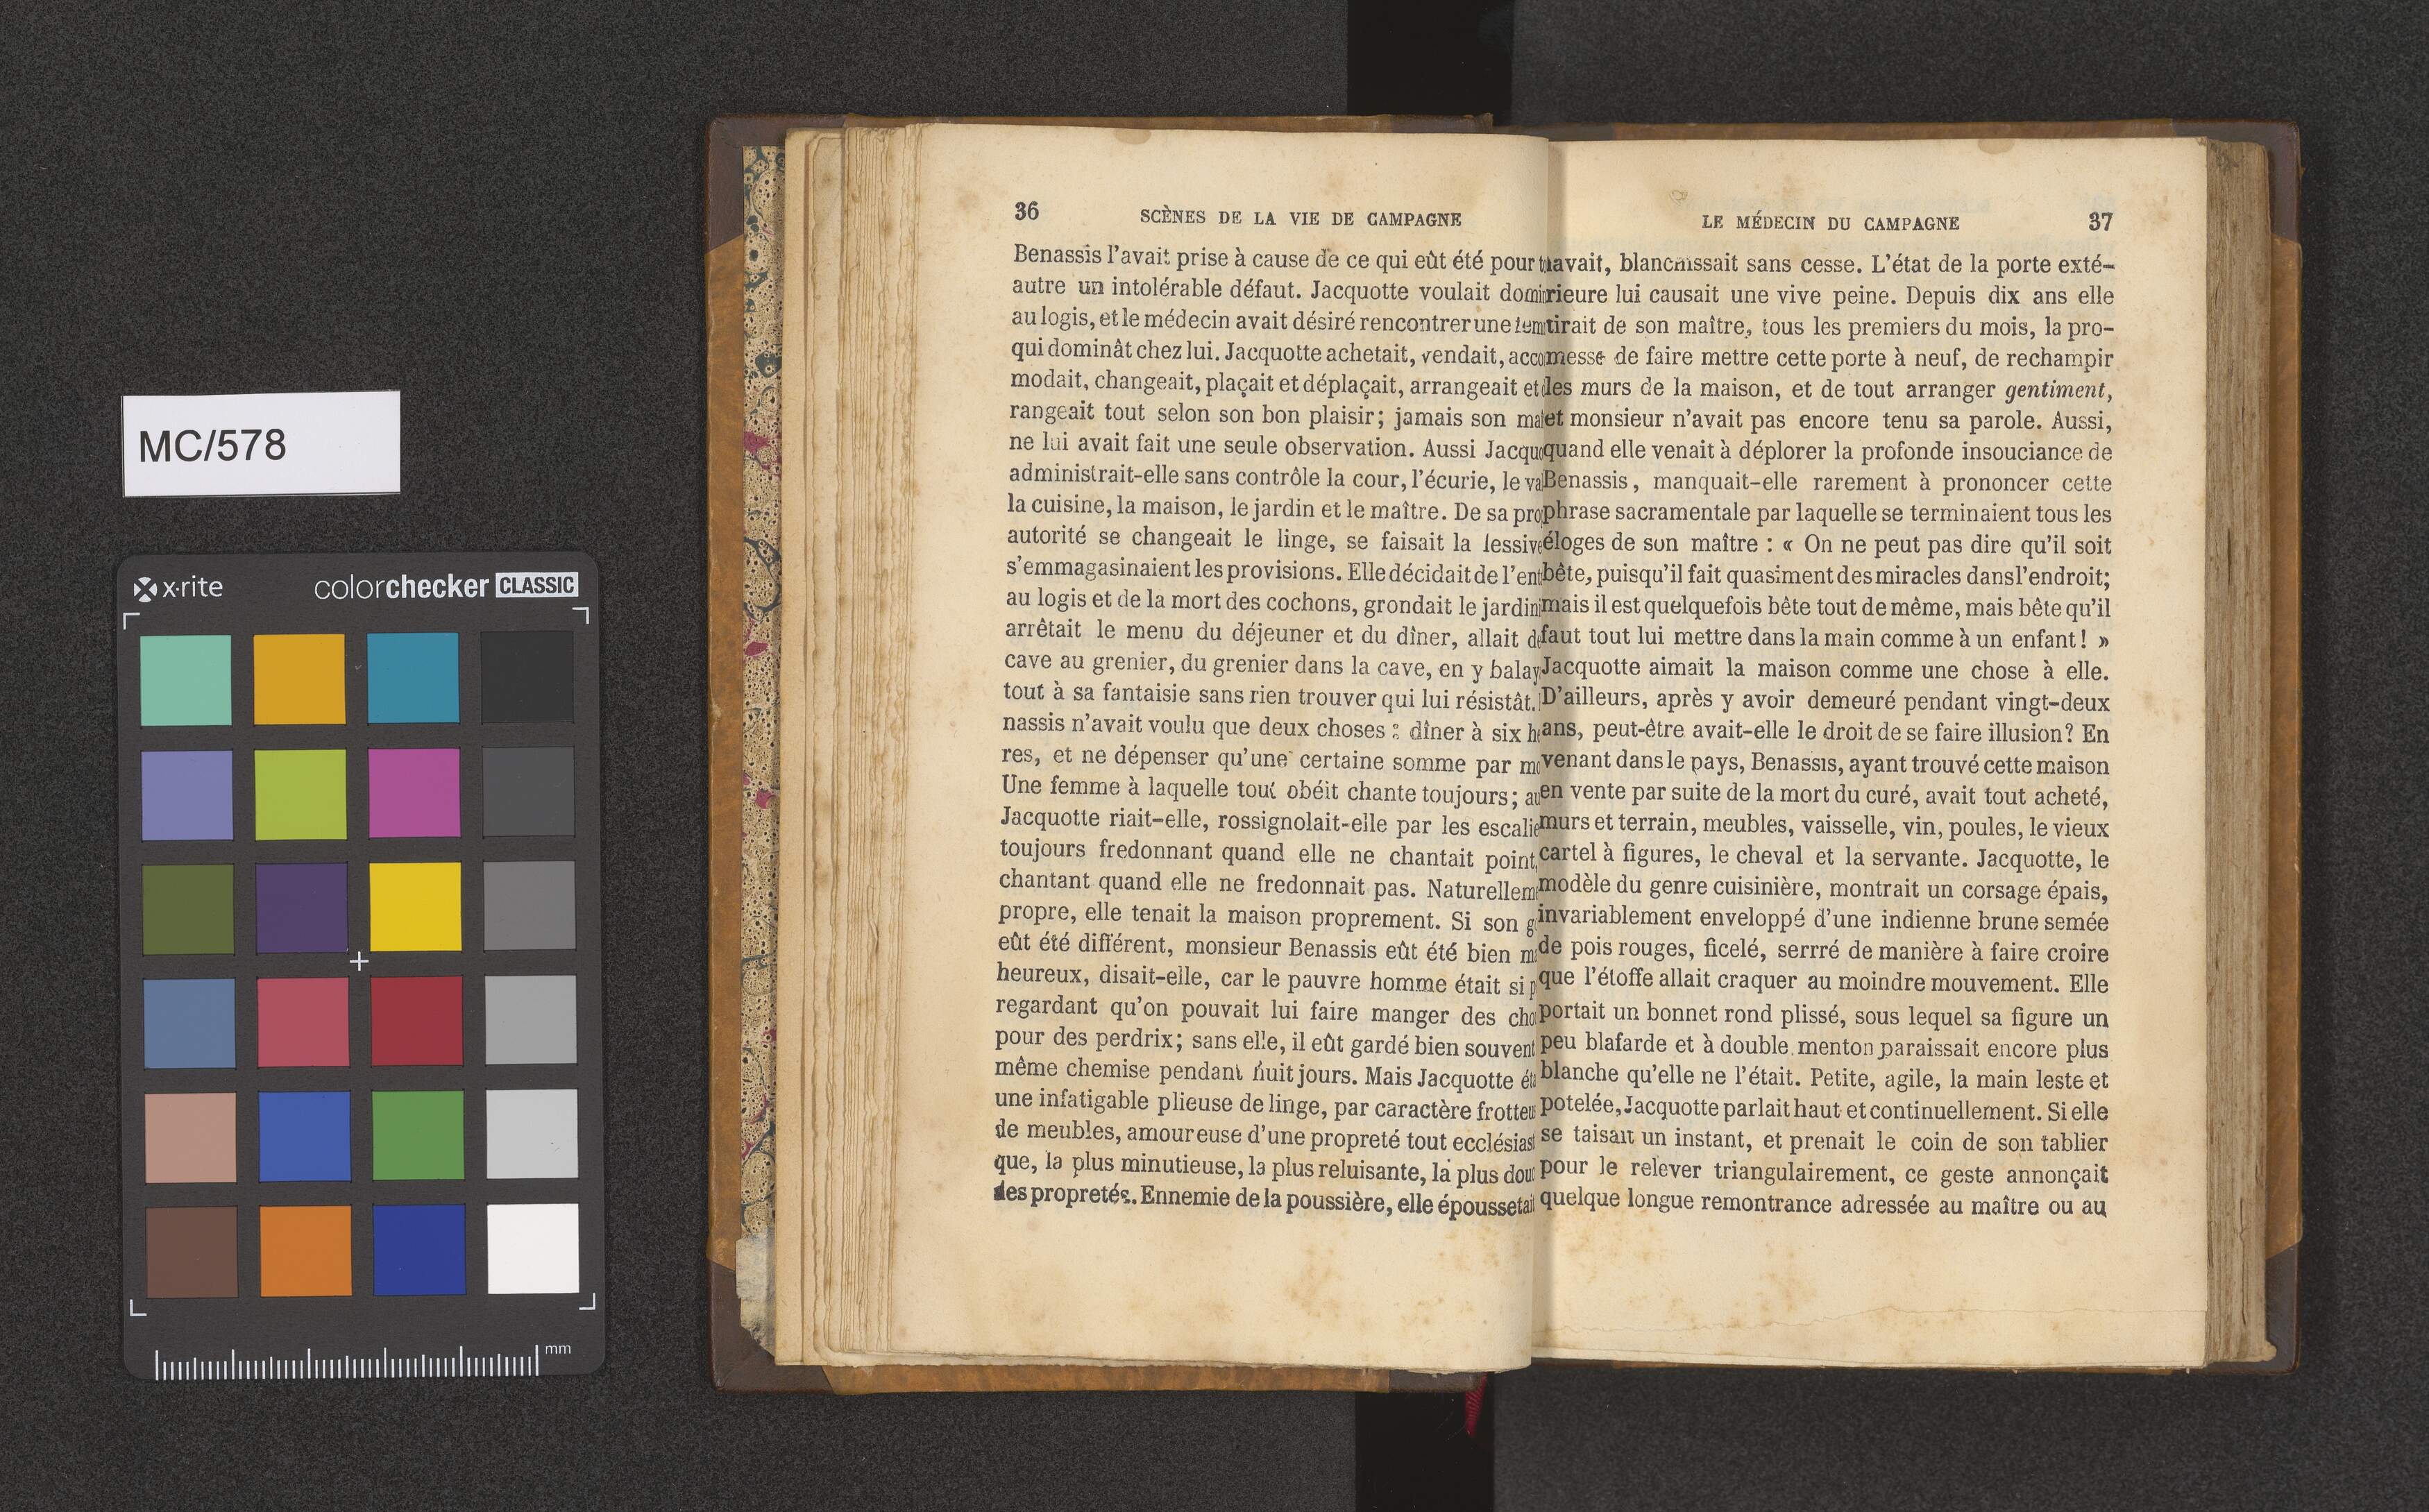 MC/578
x·rite colorchecker CLASSIC
mm
36 SCÈNES DE LA VIE DE CAMPAGNE
Benassis l'avait prise à cause de ce qui eût été pour
autre un intolérable défaut. Jacquotte voulait
au logis, et le médecin avait désiré rencontrer une
qui dominât chez lui. Jacquotte achetait, vendait,
modait, changeait, plaçait et déplaçait, arrangeait et
rangeait tout selon son bon plaisir; jamais son
ne lui avait fait une seule observation. Aussi
administrait-elle sans contrôle la cour, l'écurie, le
la cuisine, la maison, le jardin et le maître. De sa
autorité se changeait le linge, se faisait la lessive
s'emmagasinaient les provisions. Elle décidait de
au logis et de la mort des cochons, grondait le
arrêtait le menu du déjeuner et du dîner, allait
cave au grenier, du grenier dans la cave, en y
tout à sa fantaisie sans rien trouver qui lui résistât.
nassis n'avait voulu que deux choses : dîner à six
res, et ne dépenser qu'une certaine somme par
Une femme à laquelle tout obéit chante toujours;
Jacquotte riait-elle, rossignolait-elle par les
toujours fredonnant quand elle ne chantait point,
chantant quand elle ne fredonnait pas.
propre, elle tenait la maison proprement. Si son
eût été différent, monsieur Benassis eût été bien
heureux, disait-elle, car le pauvre homme était si
regardant qu'on pouvait lui faire manger des
pour des perdrix; sans elle, il eût gardé bien souvent
même chemise pendant huit jours. Mais Jacquotte
une infatigable plieuse de linge, par caractère
de meubles, amoureuse d'une propreté tout
que, la plus minutieuse, la plus reluisante, la plus
des propretés. Ennemie de la poussière, elle époussetait
LE MÉDECIN DU CAMPAGNE 37
lavait, blanchissait sans cesse. L'état de la porte exté-
rieure lui causait une vive peine. Depuis dix ans elle
tirait de son maître, tous les premiers du mois, la pro-
messe de faire mettre cette porte à neuf, de rechampir
les murs de la maison, et de tout arranger gentiment,
et monsieur n'avait pas encore tenu sa parole. Aussi,
quand elle venait à déplorer la profonde insouciance de
Benassis, manquait-elle rarement à prononcer cette
phrase sacramentale par laquelle se terminaient tous les
éloges de son maître : « On ne peut pas dire qu'il soit
bête, puisqu'il fait quasiment des miracles dans l'endroit;
mais il est quelquefois bête tout de même, mais bête qu'il
faut tout lui mettre dans la main comme à un enfant! »
Jacquotte aimait la maison comme une chose à elle.
D'ailleurs, après y avoir demeuré pendant vingt-deux
ans, peut-être avait-elle le droit de se faire illusion? En
venant dans le pays, Benassis, ayant trouvé cette maison
en vente par suite de la mort du curé, avait tout acheté,
murs et terrain, meubles, vaisselle, vin, poules, le vieux
cartel à figures, le cheval et la servante. Jacquotte, le
modèle du genre cuisinière, montrait un corsage épais,
invariablement enveloppé d'une indienne brune semée
de pois rouges, ficelé, serrré de manière à faire croire
que l'étoffe allait craquer au moindre mouvement. Elle
portait un bonnet rond plissé, sous lequel sa figure un
peu blafarde et à double menton paraissait encore plus
blanche qu'elle ne l'était. Petite, agile, la main leste et
potelée, Jacquotte parlait haut et continuellement. Si elle
se taisait un instant, et prenait le coin de son tablier
pour le relever triangulairement, ce geste annonçait
quelque longue remontrance adressée au maître ou au